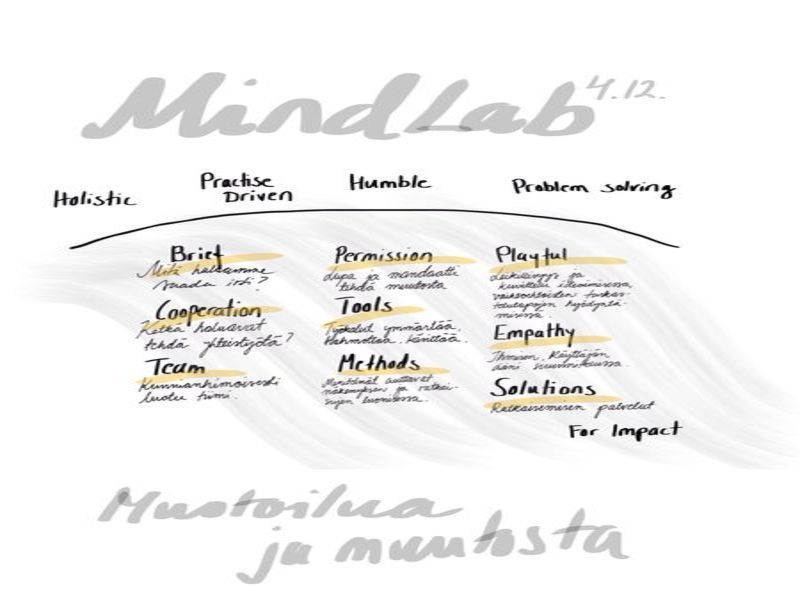 MindLab 4.12.
Holistic
Practise
Driven
Humble
Problem solving
Brief
Mitä haluamme
saada irti?
Cooperation
Ketkä haluavat
tehdä yhteistyötä?
Team
Kunnianhimoisesti
luotu tiimi.
Permission
Lupa ja mandaatti
tehdä muutosta
Tools
Työkalut ymmärtää,
hahmottaa, käsittää.
Methods
Menetelmät auttavat
näkemyksen ja ratkai-
sujen luonnissa.
Playful
Leikillisyys ja
kuvittelu ideoimisessa,
vaihtoehtoisten
hyödyntä-
misessä.
Empathy
Ihmisen, käyttäjän
ääni suunnittelussa.
Solutions
Ratkaisemisen palvelut
For Impact
Muotoilua
ja muutosta